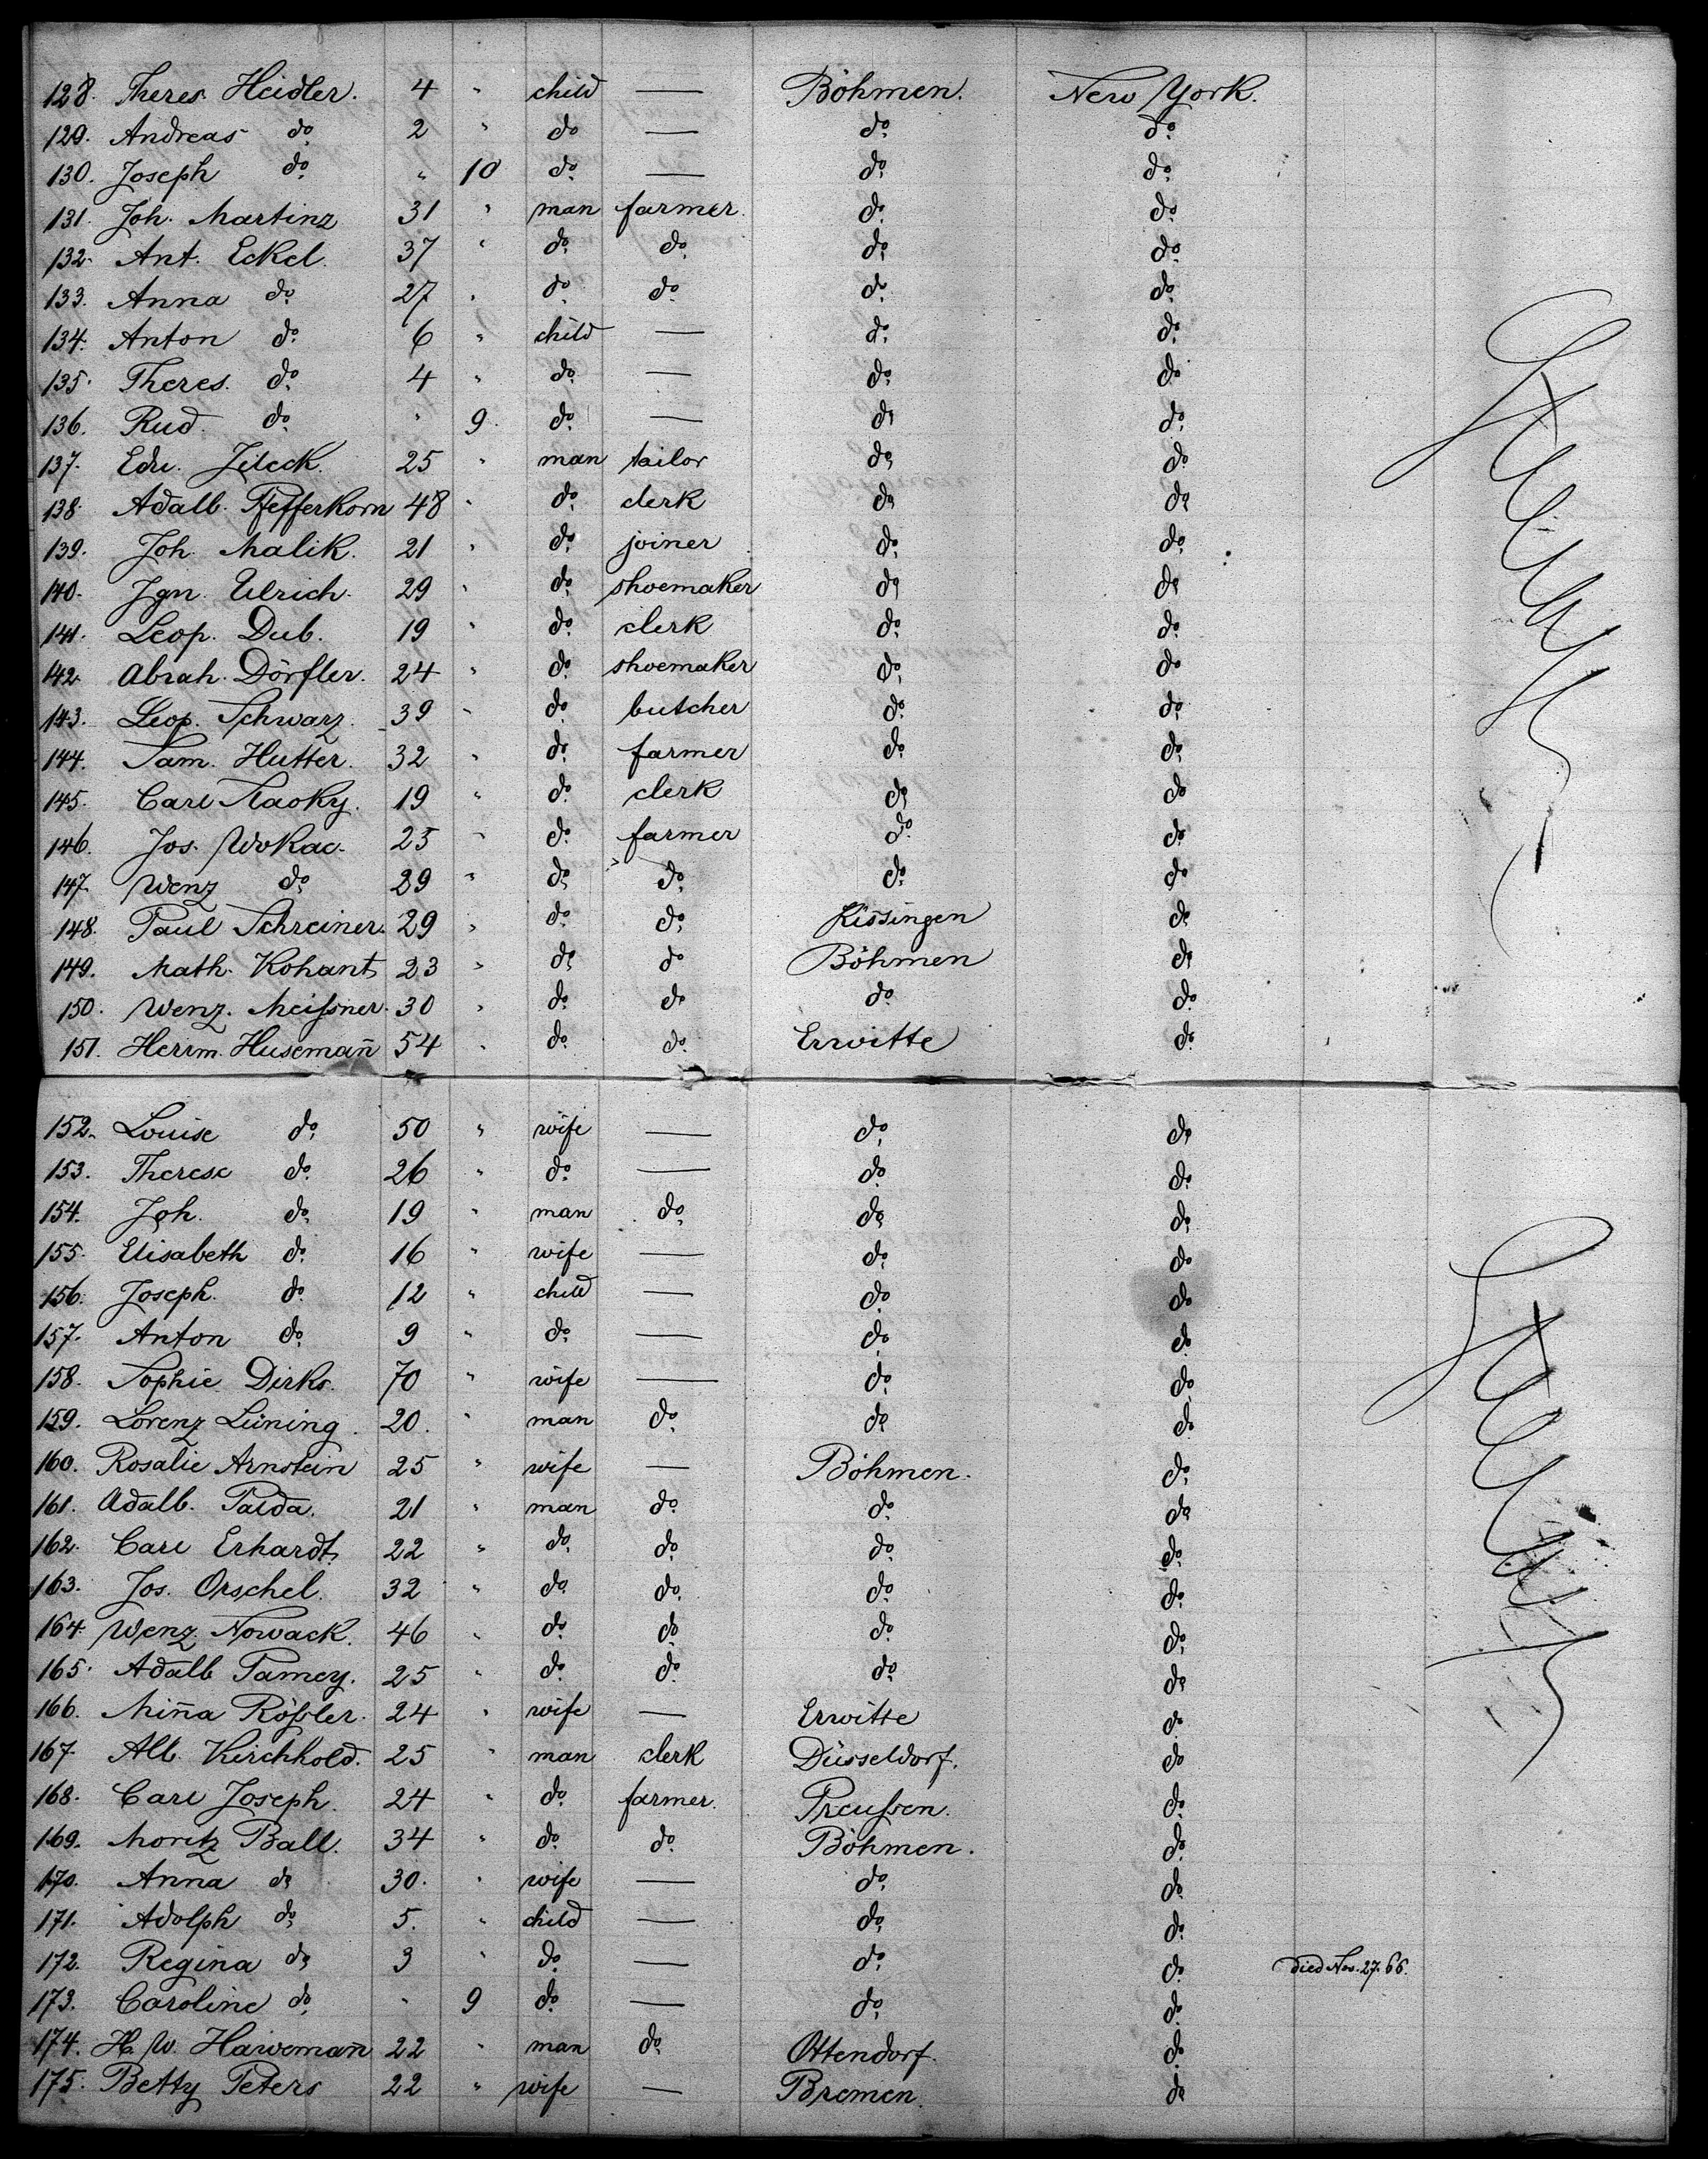 128. Theres. Heidler. 4 " child — Böhmen. New York.
129. Andreas do 2 " do — do do
130. Joseph do " 10 do — do do
131. Joh. Martinz 31 " man farmer. do do
132. Ant. Eckel. 37 " do do do do
133. Anna do 27 " do do do do
134. Anton do 6 " child — do do
135. Theres. do 4 " do — do do
136. Rud. do " 9. do — do do
137. Edu. Jileck. 25 " man tailor do do
138. Adalb. Pfefferkorn 48 " do clerk do do
139. Joh. Malik. 21 " do joiner do do
140. Ign. Ulrich. 29 " do shoemaker do do
141. Leop. Dub. 19 " do clerk do do
142. Abrah. Dörfler. 24 " do shoemaker do do
143. Leop. Schwarz. 39 " do butcher do do
144. Sam. Hutter. 32 " do farmer do do
145. Carl 19 " do clerk do do
146. Jos. Wokac. 25 " do farmer do do
147. Wenz do 29 " do do do do
148. Paul Schreiner. 29 " do do Kissingen do
149. Math. Kohant 23 " do do Böhmen do
150. Wenz. Meißner. 30 " do do do do
151. Herrm. Husemañ 54 " do do Erwitte do
152. Louise do 50 " wife — do do
153. Therese do 26 " do — do do
154. Joh. do 19 " man do do do
155. Elisabeth do 16 " wife — do do
156. Joseph. do 12 " child — do do
157. Anton do 9 " do — do do
158. Sophie Dirks. 70 " wife — do do
159. Lorenz Lüning. 20. " man do do do
160. Rosalie Arnstein 25 " wife — Böhmen. do
161. Adalb. Paida. 21 " man do do do
162. Carl Erhardt 22 " do do do do
163. Jos. Orschel. 32 " do do do do
164. Wenz. Nowack. 46 " do do do do
165. Adalb Pamey. 25 " do do do do
166. Miña Rößler. 24 " wife — Erwitte do
167. Alb. Kirchhold. 25 " man clerk Düsseldorf. do
168. Carl Joseph. 24 " do farmer. Preußen. do
169. Moritz Ball. 34 " do do Böhmen. do
170. Anna do 30. " wife — do do
171. Adolph do 5. " child — do do
172. Regina do 3 " do — do do died Nov. 27. 66.
173. Caroline do " 9 do — do do
174. H. W. Hawemañ 22 " man do Ottendorf. do
175. Betty Peters 22 " wife — Bremen. do